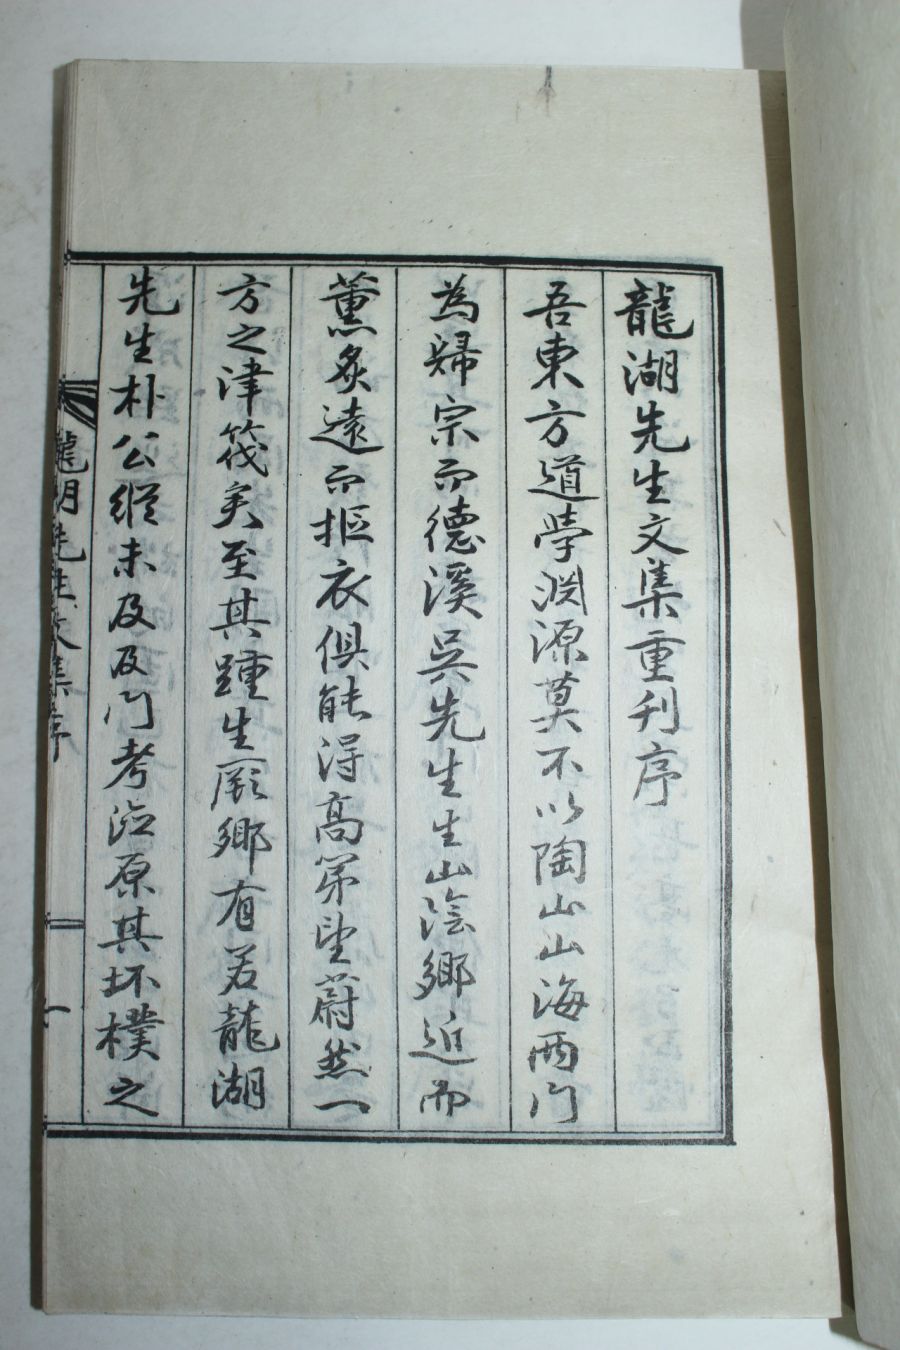 龍湖先生文集重刊序
吾東方道學淵源莫不以陶山山海兩門
為歸宗而德溪吳先生生山陰鄉近而
薰炙遠而摳衣俱能得高弟望蔚然一
方之津筏矣至其踵生厥鄉有若龍湖
先生朴公縱未及及門考泝原其坏樸之
龍湖先生文集序
一